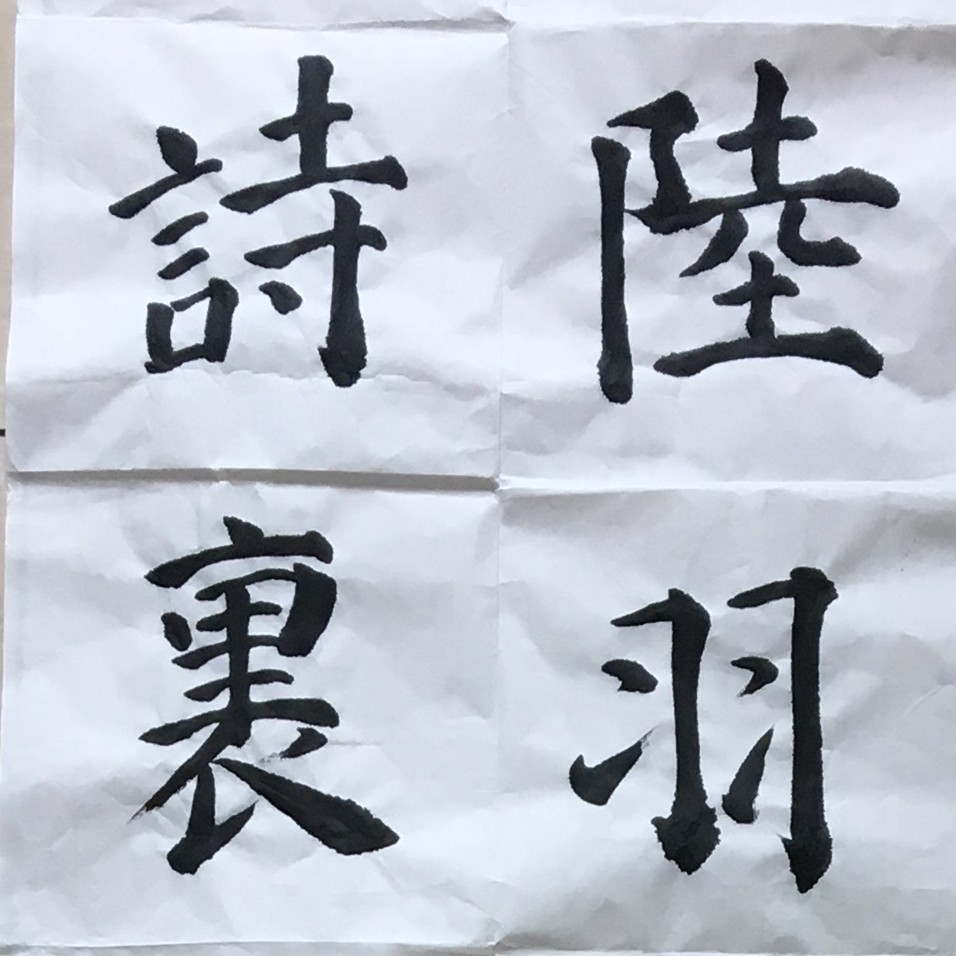 陸羽
詩裏